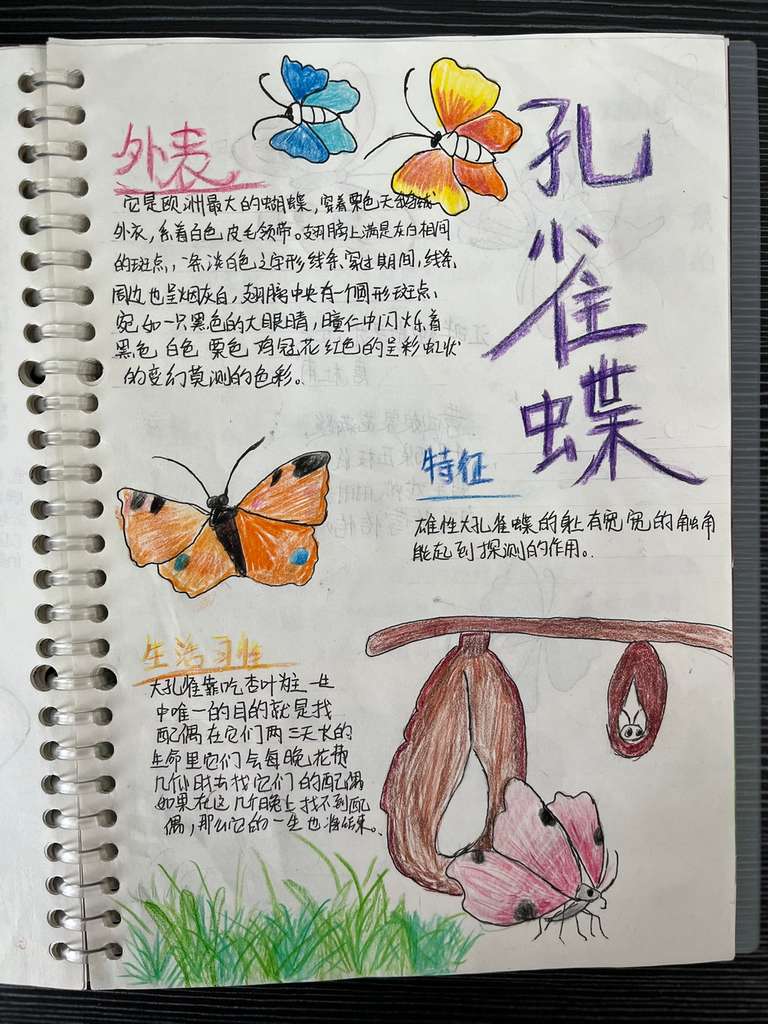 孔雀蝶
外表
它是欧洲最大的蝴蝶,穿着栗色天鹅绒
外衣,系着白色皮毛领带。翅膀上满是灰白相间
的斑点,一条淡白色之字形线条穿过期间,线条
周边也呈烟灰白,翅膀中央有一个圆形斑点,
宛如一只黑色的大眼睛,瞳仁中闪烁着
黑色 白色 栗色 鸡冠花红色的呈彩虹状
的变幻莫测的色彩。
特征
雄性大孔雀蝶的身上有宽宽的触角
能起到探测的作用。
生活习性
大孔雀靠吃杏叶为主 一生
中唯一的目的就是找
配偶在它们两三天长的
生命里它们会每晚花
几个小时去找它们的配偶
如果在这几个晚上找不到配
偶,那么它的一生也将结束。